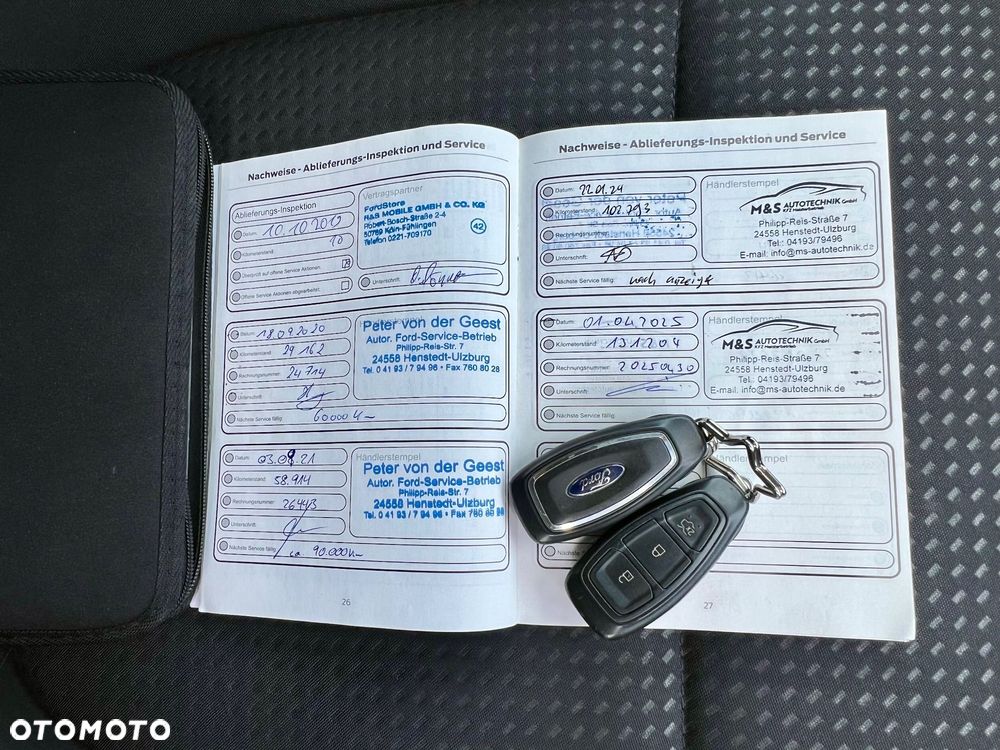 Nachweise - Ablieferungs-Inspektion und Service
Ablieferungs-Inspektion
Datum: 10.10.2019
Kilometerstand: 10
Überprüft auf offene Service Aktionen.
Offene Service Aktionen abgearbeitet.
Vertragspartner
FordStore
R&S MOBILE GMBH & CO. KG
Robert-Bosch-Straße 2-4
50769 Köln-Fühlingen
Telefon 0221-709170
42
Unterschrift:
Datum: 18.09.2020
Kilometerstand: 29 162
Rechnungsnummer: 24714
Unterschrift:
Nächste Service fällig: 60000 km
Peter von der Geest
Autor. Ford-Service-Betrieb
Philipp-Reis-Str. 7
24558 Henstedt-Ulzburg
Tel. 0 41 93 / 7 94 96 • Fax 760 80 28
Datum: 03.09.21
Kilometerstand: 58.914
Rechnungsnummer: 26443
Unterschrift:
Nächste Service fällig: ca 90.000 km
Händlerstempel
Peter von der Geest
Autor. Ford-Service-Betrieb
Philipp-Reis-Str. 7
24558 Henstedt-Ulzburg
Tel. 0 41 93 / 7 94 96 • Fax 760 80 28
26
Nachweise - Ablieferungs-Inspektion und Service
Datum: 22.01.24
Kilometerstand: 102.793
Rechnungsnummer:
Unterschrift:
Nächste Service fällig: nach Anzeige
Händlerstempel
M&S AUTOTECHNIK GmbH
KFZ Meisterbetrieb
Philipp-Reis-Straße 7
24558 Henstedt-Ulzburg
Tel.: 04193/79496
E-mail: info@ms-autotechnik.de
Datum: 01.04.2025
Kilometerstand: 131204
Rechnungsnummer: 20250430
Unterschrift:
Nächste Service fällig:
Händlerstempel
M&S AUTOTECHNIK GmbH
KFZ Meisterbetrieb
Philipp-Reis-Straße 7
24558 Henstedt-Ulzburg
Tel.: 04193/79496
E-mail: info@ms-autotechnik.de
Ford
27
OTOMOTO